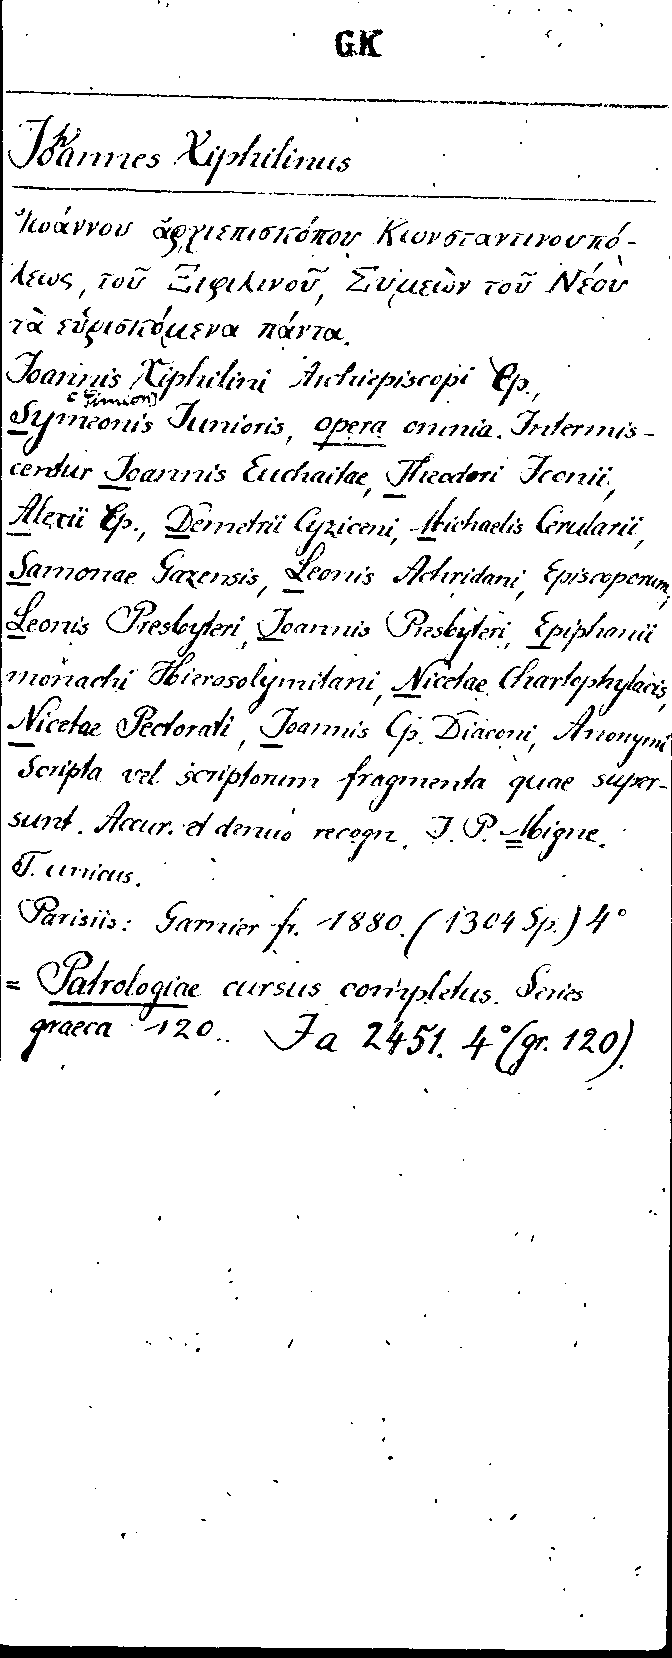 GK
Johannes Xiphilinus
Ἰωάννου ἀρχιεπισκόπου Κωνσταντινουπό-
λεως, τοῦ Ξιφιλινοῦ, Συμεὼν τοῦ Νέου
τὰ εὑρισκόμενα πάντα.
Joannis Xiphilini Archiepiscopi Cp.,
[Simeon]
Symeonis Junioris, opera omnia. Intermis-
centur Joannis Euchaitae, Theodori Iconii,
Alexii Cp., Demetrii Cyziceni, Michaelis Cerularii,
Samonae Gazensis, Leonis Achridani, Episcoporum;
Leonis Presbyteri, Joannis Presbyteri, Epiphanii
monachi Hierosolymitani, Nicetae Chartophylacis,
Nicetae Pectorati, Joannis Cp. Diaconi, Anonymi
Scripta vel scriptorum fragmenta quae super-
sunt. Accur. et denuo recogn. J. P. Migne.
T. unicus.
Parisiis: Garnier fr. 1880. (1304 Sp.) 4°
= Patrologiae cursus completus. Series
graeca 120. Ja 2451. 4° (gr. 120).